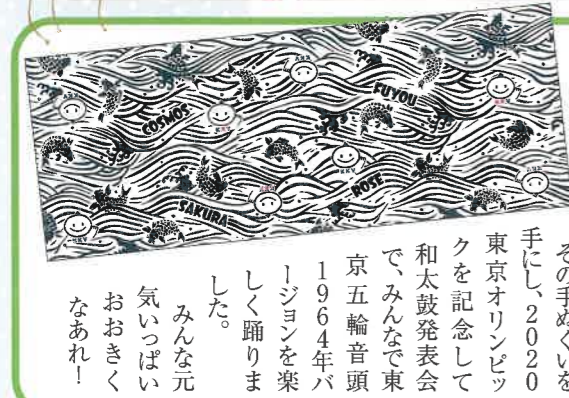 COSMOS
FUYOU
SAKURA
ROSE
その手ぬぐいを
手にし、2020
東京オリンピッ
クを記念して
和太鼓発表会
で、みんなで東
京五輪音頭
1964年バ
ージョンを楽
しく踊りま
した。
みんな元
気いっぱい
おおきく
なあれ!